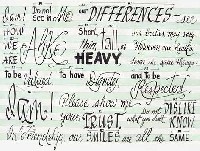 Dear! Do not See in Me our DIFFERENCES – see
HOW WE ARE ALIKE! Short, thin, tall or HEAVY, our bodies may vary
To be Valued, to have Dignity and To be Respected.
Dear! Please show me your TRUST. Do not DISLIKE what you don't KNOW.
In Friendship, our SMILES are all the SAME.